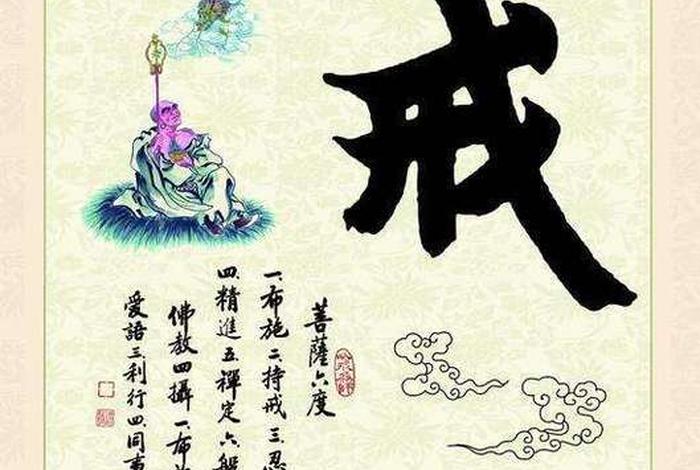 戒
菩薩六度
一、布施二、持戒三、忍
四、精進五、禪定六、般
佛教四攝一、布
愛語三、利行四、同事